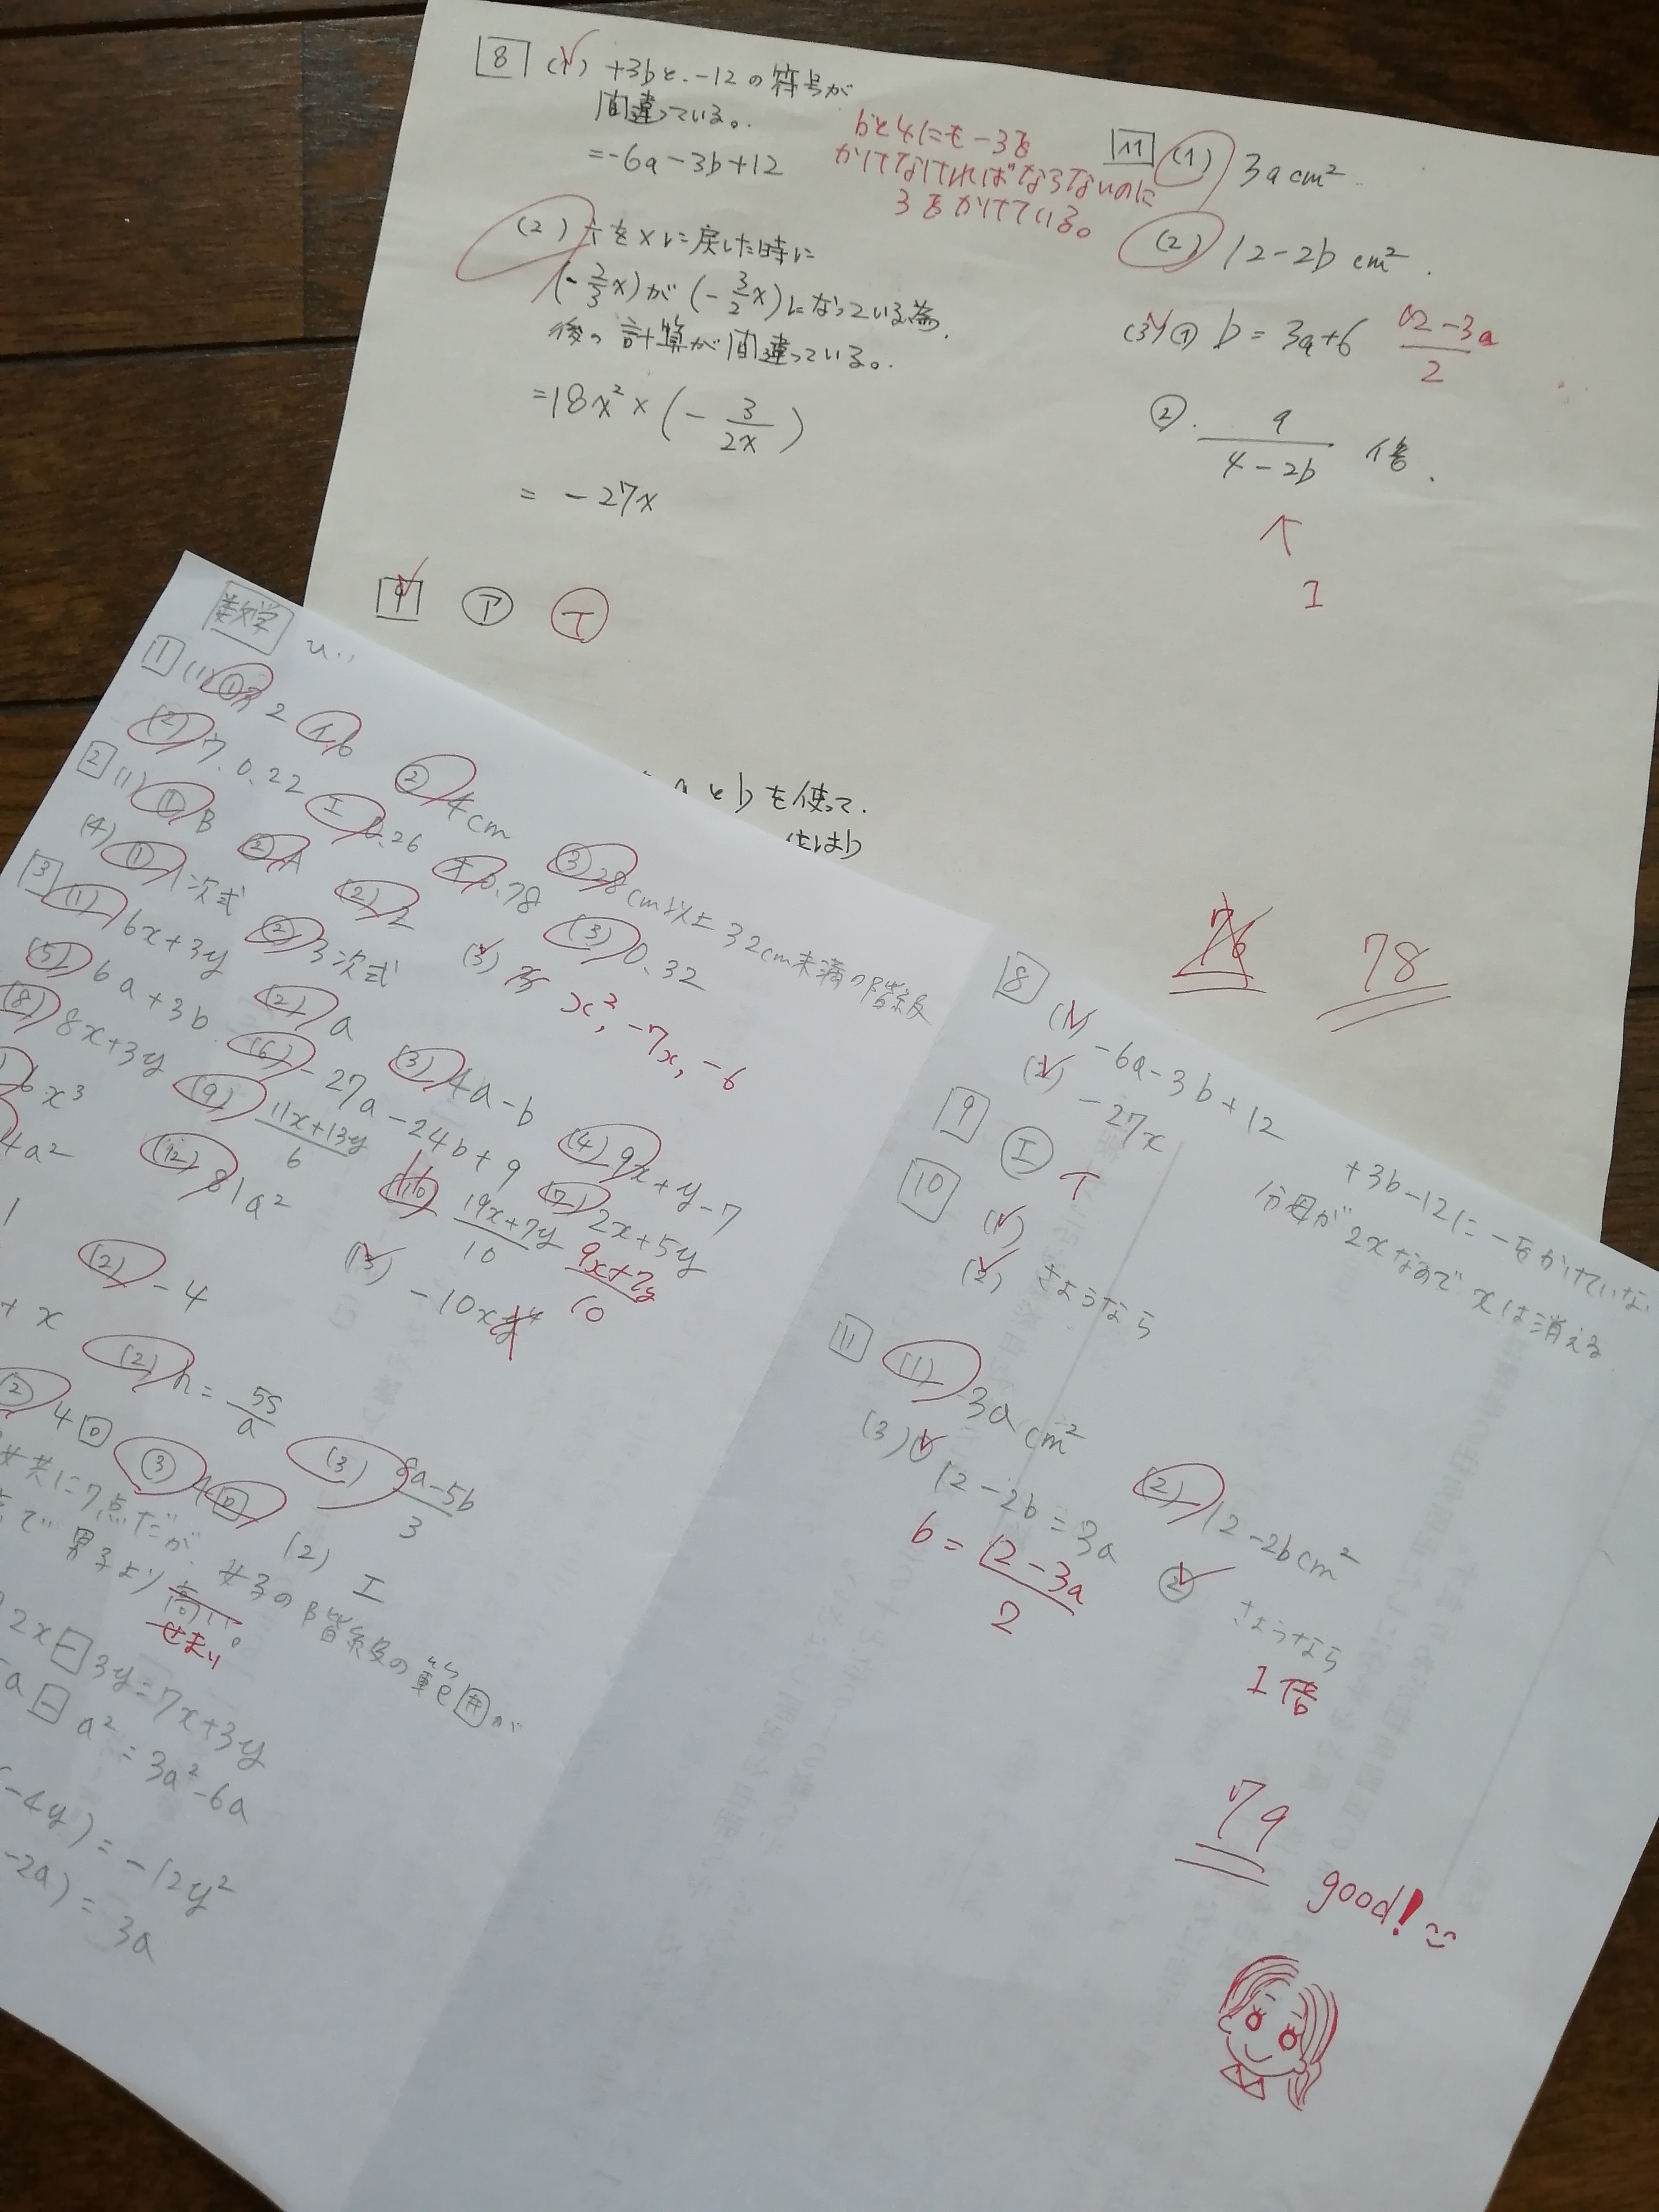 8 (1) +3bと、-12の符号が
間違っている。
=-6a-3b+12
bと4にも-3を
かけてなければならないのに
3をかけている。
(2) ÷を×に戻した時に
(-2/3x)が(-3/2x)になっている為、
後の計算が間違っている。
=18x²×(-3/2x)
= -27x
9 ア イ
11 (1) 3a cm²
(2) 12-2b cm²
(3) ① b=3a+6 12-3a/2
② a/4-2b 倍
↑
1
aとbを使って、
76 78
数学
1 (1) ① ア 2 イ 6 ② 4cm ③ 28cm以上32cm未満の階級
(2) ウ 0.22 エ 0.26 オ 0.78 (3) 0.32
2 (1) ① B ② A (2) 2 (3) x², -7x, -6
(4) ① 1次式 ② 3次式
3 (1) 6x+3y (2) a (3) 4a-b (4) 9x+y-7
(5) 6a+3b (6) -27a-24b+9 (7) 2x+5y
(8) 8x+3y (9) 11x+13y/6 (10) 19x+7y/10 9x+7y/10
6x³ (12) 81a² (13) -10xy
4a²
(2) -4
+x (2) h=5S/a (3) 8a-5b/3
② 4 ③ 4 (2) エ
共に7点だが、女子の階級の範囲が
で男子より高い。
せまい
2x-3y=7x+3y
a-a²=3a²-6a
-4y)=-12y²
-2a)=3a
8 (1) -6a-3b+12 +3b-12に-をかけていない
(2) -27x 分母が2xなのでxは消える
9 エ イ
10 (1)
(2) さようなら
11 (1) 3a cm² (2) 12-2b cm²
(3) ① 12-2b=3a ② さようなら
b=12-3a/2
1倍
79 good!